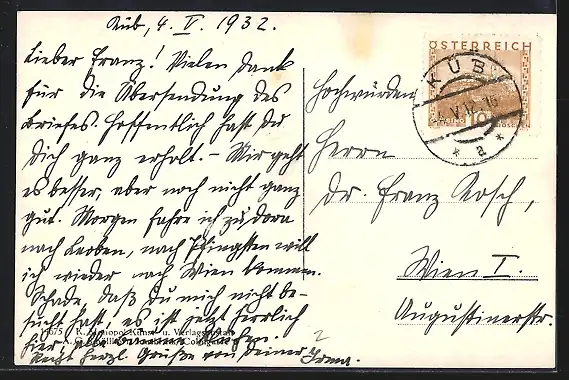 Küb, 4. V. 1932.
Lieber Franz! Vielen Dank
für die Übersendung des
Briefes. Hoffentlich hast Du
Dich ganz erholt. – Mir geht
es besser, aber noch nicht ganz
gut. Morgen fahre ich zu Dora
nach Leoben, nach Pfingsten will
ich wieder nach Wien kommen.
Schade, daß Du mich nicht be-
sucht hast, es ist jetzt herrlich
hier,
Recht herzl. Grüße von Deiner Irma.
Kunst- u. Verlagsanstalt
ÖSTERREICH
10
KÜB
a
Hochwürden
Herrn
Dr. Franz Kosch,
Wien I.
Augustinerstr.